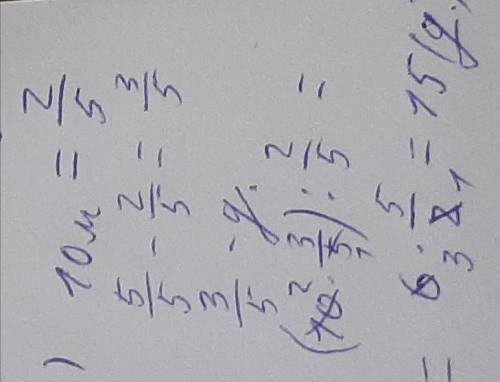 ) 10м = 2/5
5/5 - 2/5 = 3/5
3/5 - д.
(10 · 3/5) : 2/5 =
= 6 · 5/2 = 15 (д.